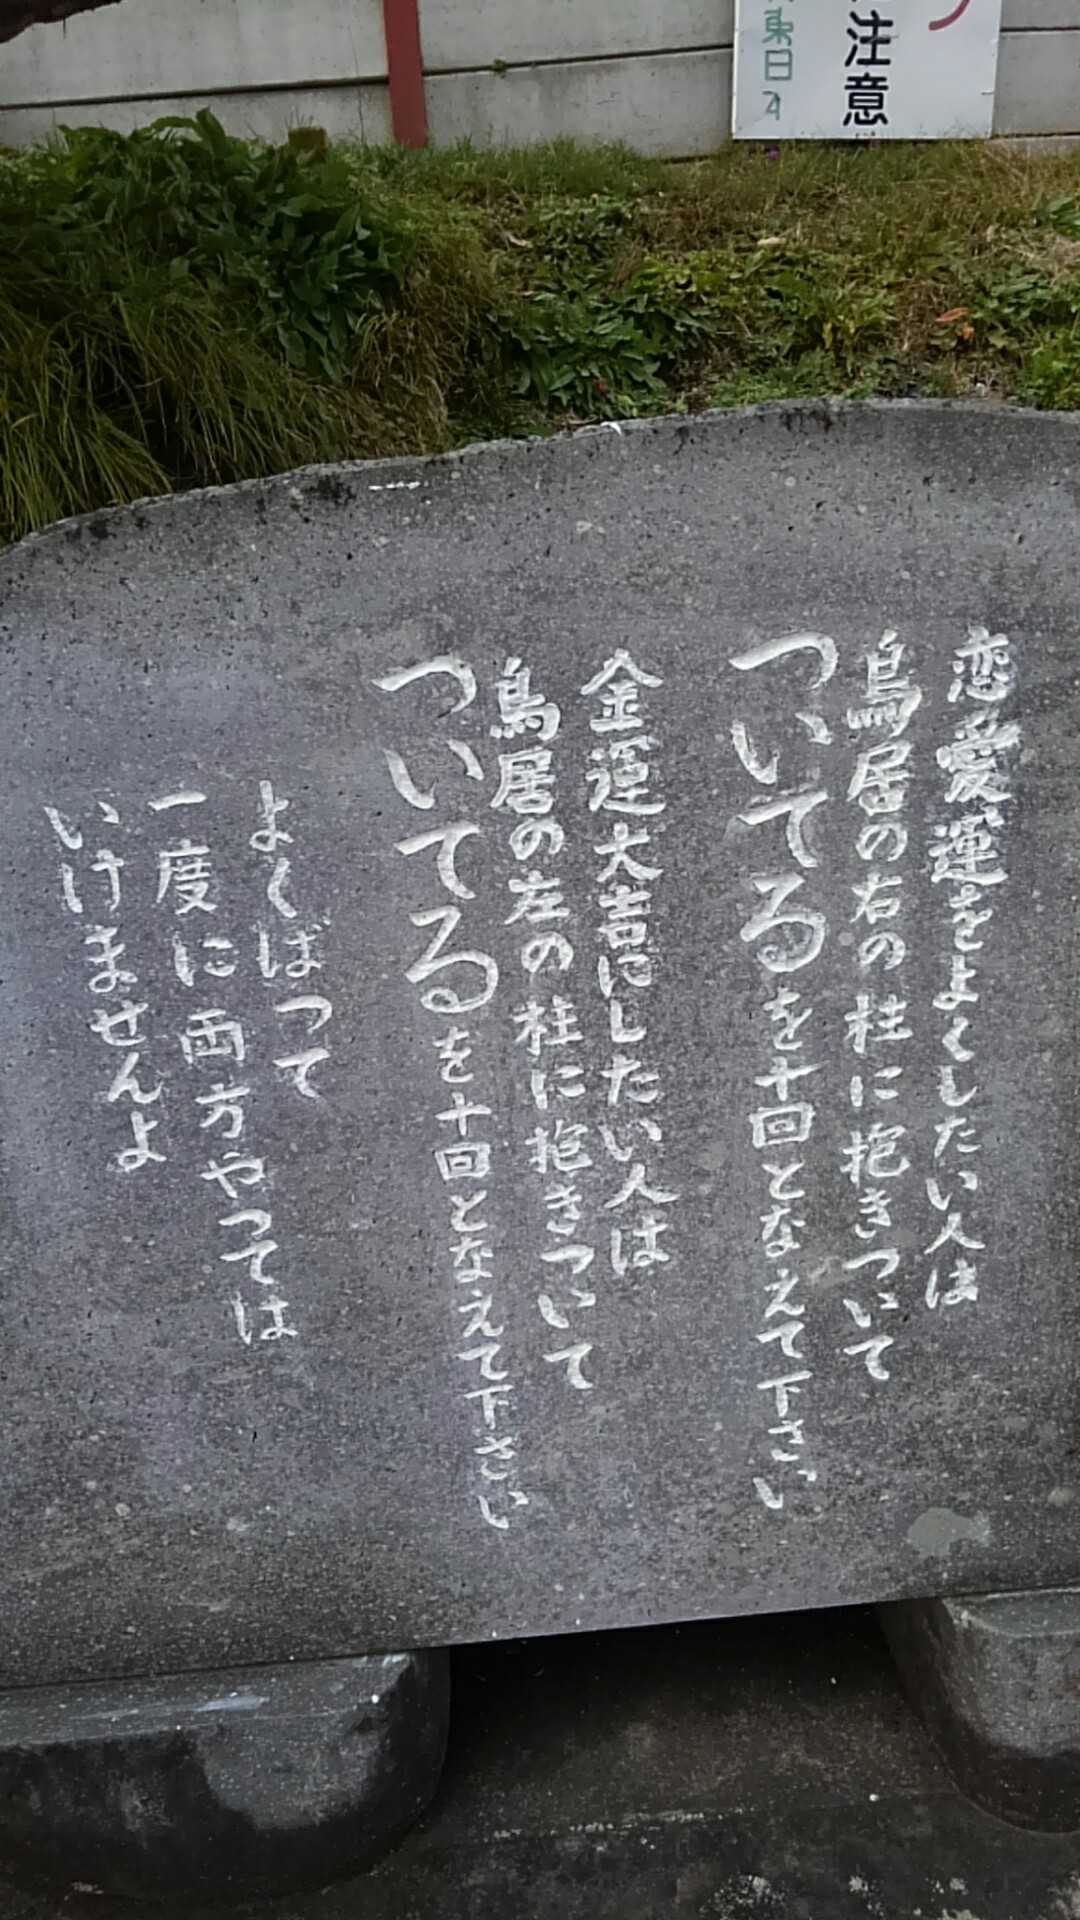 注意
東日本
恋愛運をよくしたい人は
鳥居の右の柱に抱きついて
ついてるを十回となえて下さい
金運大吉にしたい人は
鳥居の左の柱に抱きついて
ついてるを十回となえて下さい
よくばって
一度に両方やっては
いけませんよ